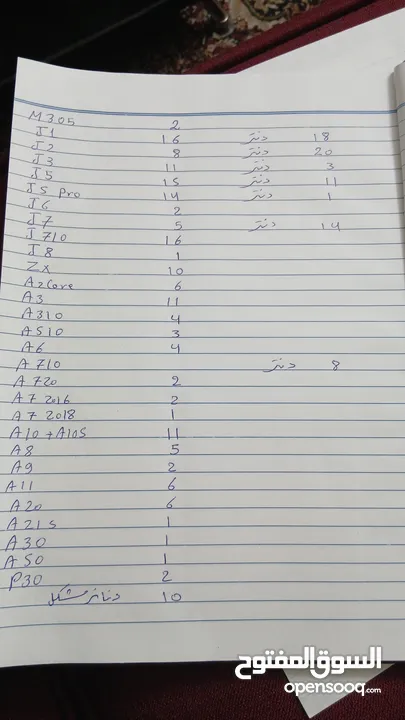 M305 2
J1 16 دنتر 18
J2 8 دنتر 20
J3 11 دنتر 3
J5 15 دنتر 11
J5 Pro 14 دنتر 1
J6 2
J7 5 دنتر 14
J710 16
J8 1
Zx 10
A2Core 6
A3 11
A310 4
A510 3
A6 4
A710 دنتر 8
A720 2
A7 2016 2
A7 2018 1
A10 + A10S 11
A8 5
A9 2
A11 6
A20 6
A21s 1
A30 1
A50 1
P30 2
دناتر مشكل 10
السوق المفتوح
opensooq.com